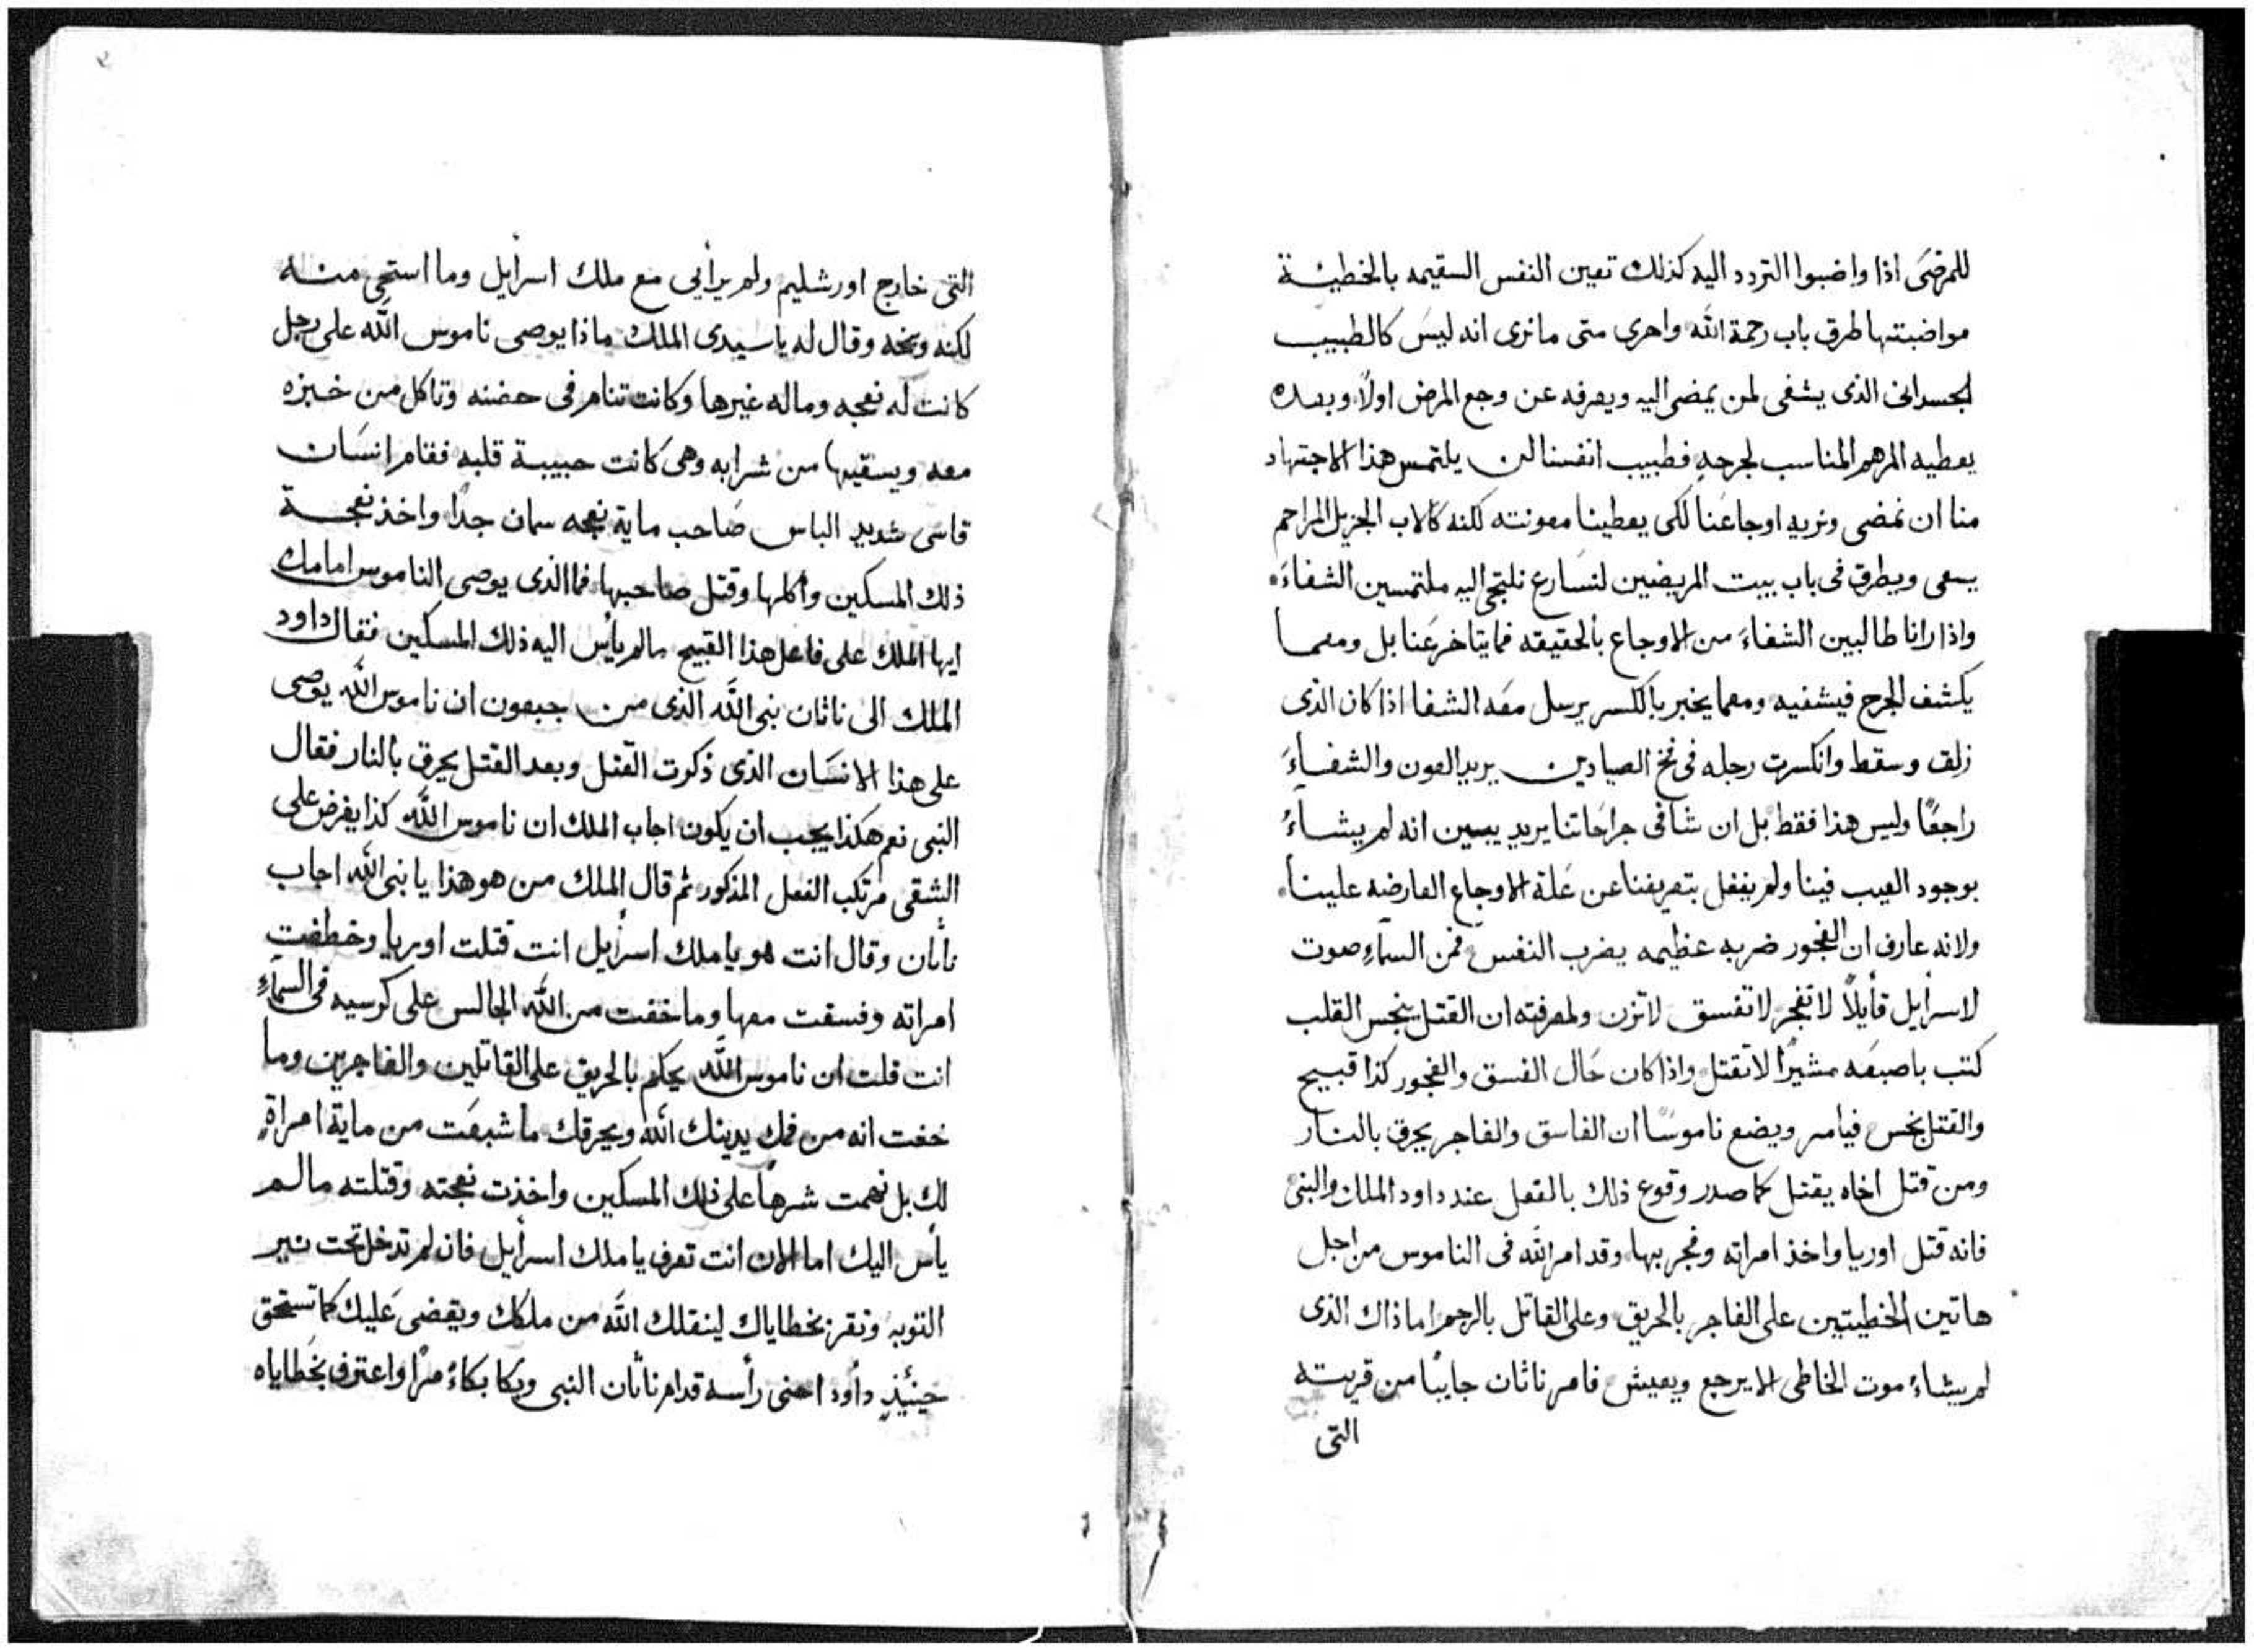 للمرضَى اذا واضبوا التردد اليه كذلك تعين النفس السقيمه بالخطيئة
مواضبتها طرق باب رحمة الله واحرى متى مانرى انه ليسَ كالطبيب
الجسدانى الذى يشفى لمن يمضى اليه ويعرفه عن وجع المرض اولاً وبعده
يعطيه المرهم المناسب لجرحهِ فطبيب انفسنا لن يلتمس هذا الاجتهاد
منا ان نمضى ونريه اوجاعَنا لكى يعطينا معونته لكنه كالاب الجزيل المراحم
يسعى ويطرق فى باب بيت المريضين لنسَارع نلتجى اليه ملتمسين الشفاءَ
واذا رانا طالبين الشفاءَ من الاوجاع بالحقيقه فمايتاخر عَنا بل ومعما
يكشف الجرح فيشفيه ومعما يخبر بالكسر يرسل معَه الشفا اذا كان الذى
زلِق وسقط وانكسرت رجله فى فخ الصيادين يريد العون والشفـاءَ
راجعًا وليس هذا فقط بل ان شافى جراحَاتنا يريد يبيين انه لم يشــاءُ
بوجود العيب فينا ولم يغفل بتعريفنا عن عَلة الاوجاع العارضه علينا
ولانه عارف ان الفجور ضربه عظيمه يضرب النفس فمن السماءِ صوت
لاسرأيل قأيلاً لاتفجر لاتفسق لاتزن ولمعرفته ان القتل ينجس القلب
كتب باصبعَه مشيرًا لاتقتل واذا كان حَال الفسق والفجور كذا قبيح
والقتل نجس فيامر ويضع ناموسًا ان الفاسق والفاجر يحرق بالنـار
ومن قتل اخاه يقتل كما صدر وقوع ذلك بالفعل عند داود الملك والنبى
فانه قتل اوريا واخذ امراته وفجر بها وقد امر الله فى الناموس من اجل
هاتين الخطيتين على الفاجر بالحريق وعلى القاتل بالرجم اما ذاك الذى
لم يشاءُ موت الخاطى الا يرجع ويعيش فامر ناثان جايبًا من قريته
التى
التى خارج اورشليم ولم يرأيى مع ملك اسرأيل وما استحى منـه
لكنه وبخه وقال له ياسيدى الملك ماذا يوصى ناموس الله على رجل
كانت له نعجه وماله غيرها وكانت تنام فى حضنه وتاكل من خبزه
معه ويسقيها من شرابه وهى كانت حبيبة قلبه فقام انسَان
قاسى شديد الباس صَاحب ماية نعجه سمان جداً واخذ نعجـة
ذلك المسكين واكلها وقتل صاحبها فما الذى يوصى الناموس امامك
ايها الملك على فاعل هذا القبيح مالم يأس اليه ذلك المسكين فقال داود
الملك الى ناثان نبى الله الذى من جبعون ان ناموس الله يوصى
على هذا الانسَان الذى ذكرت القتل وبعد القتل يحرق بالنار فقال
النبى نعم هكذا يجب ان يكون اجاب الملك ان ناموس الله كذا يفرض على
الشقى مرتكب الفعل المذكور ثم قال الملك من هو هذا يا نبى الله اجاب
ناثان وقال انت هو ياملك اسرأيل انت قتلت اوريا وخطفت
امراته وفسقت معها وماخفت من الله الجالس على كرسيه فى السماءِ
انت قلت ان ناموس الله يحكم بالحريق على القاتلين والفاجرين وما
خفت انه من فمك يدينك الله ويحرقك ما شبعَت من ماية امراةٍ
لك بل نهمت شرهًا على ذلك المسكين واخذت نعجته وقتلته مالـم
يأس اليك اما الان انت تعرف ياملك اسرأيل فان لم تدخل تحت نير
التوبه وتقر بخطاياك لينقلك الله من ملكك ويقضى عَليك كما تستحق
حينيئذٍ دأود احنى رأسه قدام ناثان النبى وبكا بكاءً مرًا واعترف بخَطاياه